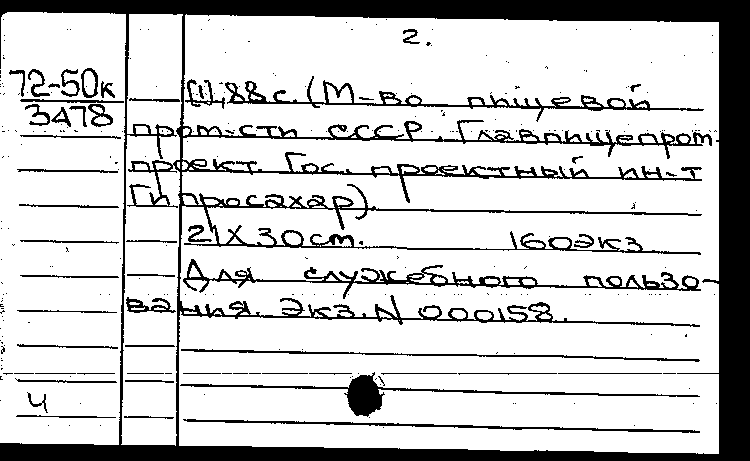 2.
72-50к
3478
[1], 88 с. (М-во пищевой
пром-сти СССР. Главпищепром-
проект. Гос. проектный ин-т
Гипросахар).
21Х30 см. 160 экз
Для служебного пользо-
вания. Экз. N 000158.
Ч